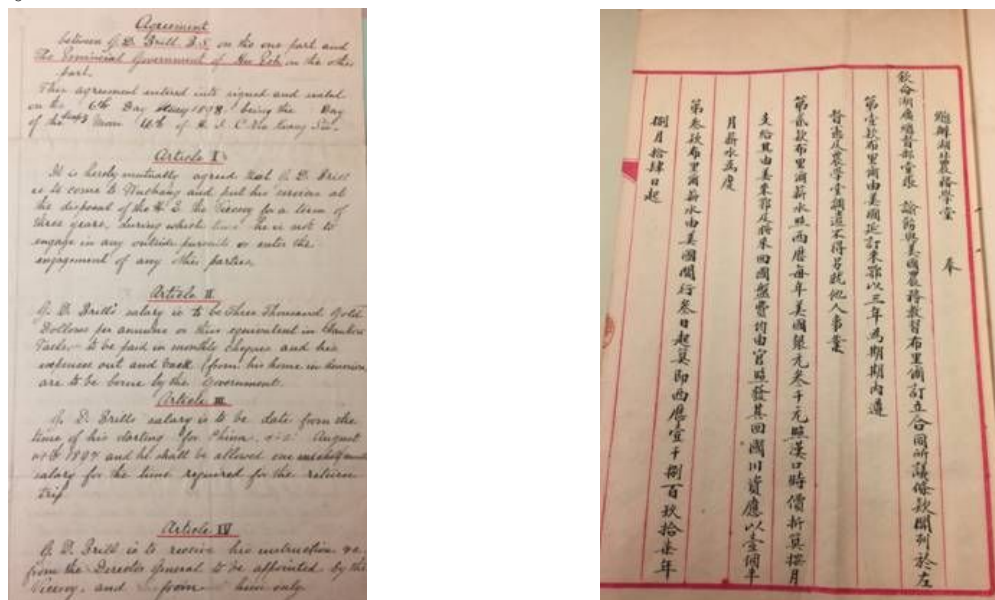 Agreement
between G. D. Brill B.S. on the one part and
The Provincial Government of Hu Peh on the other
part.
This agreement entered into signed and sealed
on the 6th Day 1898 being the Day
of the Moon 4th of H. I. C. Kwang Sü.
Article I
It is hereby mutually agreed that G. D. Brill
is to come to Wuchang and put his services at
the disposal of the H. E. the Viceroy for a term of
three years, during which time he is not to
engage in any outside pursuits or enter the
engagement of any other parties.
Article II
G. D. Brill's salary is to be Three Thousand Gold
Dollars per annum or this equivalent in Hankow
Taels to be paid in monthly cheques and his
expenses out and back (from his home in America
are to be borne by the Government.
Article III
G. D. Brills salary is to be date from the
time of his starting for China, August
1897 and he shall be allowed one
salary for the time required for the return
trip
Article IV
G. D. Brill is to receive his instruction
from the Director General to be appointed by the
Viceroy, and from him only
總辦湖北農務學堂 奉
欽命湖廣總督部堂張 諭飭與美國農務教習布里爾訂立合同所議條款開列於左
第壹款布里爾由美國延訂來鄂以三年為期期內遵
督憲及農學堂調遣不得另就他人事業
第貳款布里爾薪水照西曆每年美國銀元叁千元照漢口時價折算按月
支給其由美來鄂及將來回國盤費均由官照發其回國川資應以壹個半
月薪水為度
第叁款布里爾薪水由美國開行叁日起算即西曆壹千捌百玖拾柒年
捌月拾肆日起